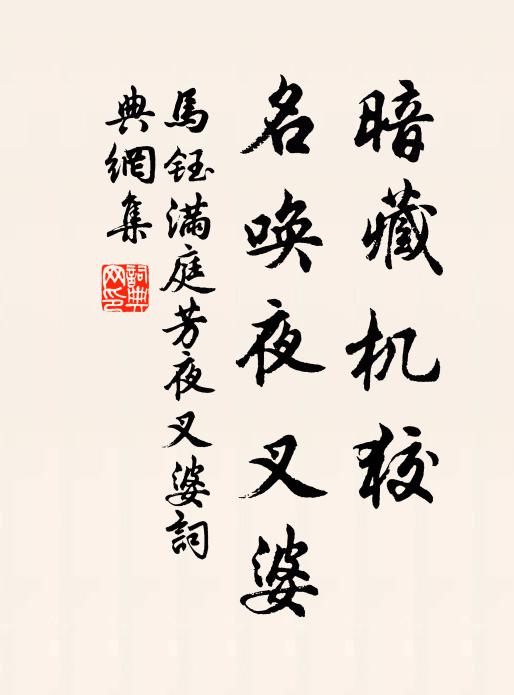 暗藏机狡
名唤夜叉婆
馬鈺满庭芳夜叉婆詞
典網集
詞典网印